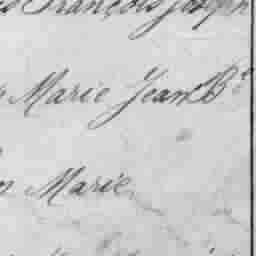 François Joseph
Marie Jean Bte
Marie